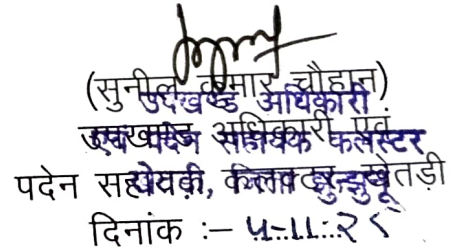 (सुनील कुमार चौहान)
उपखण्ड अधिकारी
उपखण्ड अधिकारी एवं
एवं पदेन सहायक कलेक्टर
पदेन सहायक कलक्टर खेतड़ी
खेतड़ी, जिला झुन्झुनू
दिनांक :–